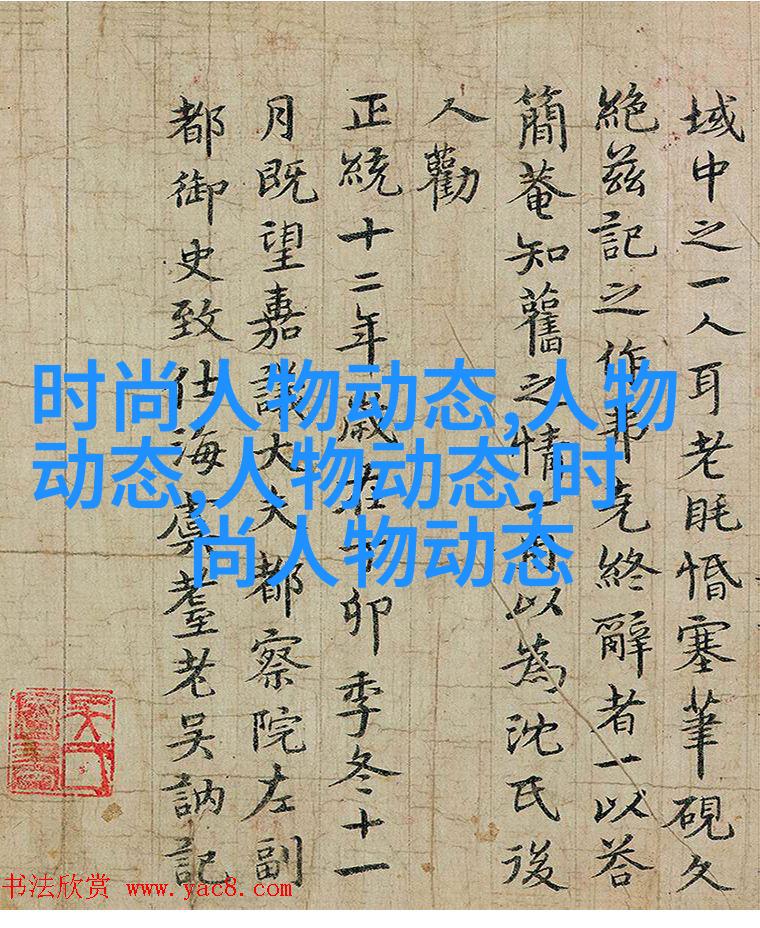 域中之一人耳老眊惛塞筆硯久
絶茲記之作弗克終辭者一以荅
簡菴知舊之情一以為沈氏後
人勸
正統十二年歲在丁卯季冬十一
月既望嘉議大夫都察院左副
都御史致仕海虞耆老吳訥記
时尚人物动态,人物
动态,人物动态,时
尚人物动态
书法欣赏 www.yac8.com